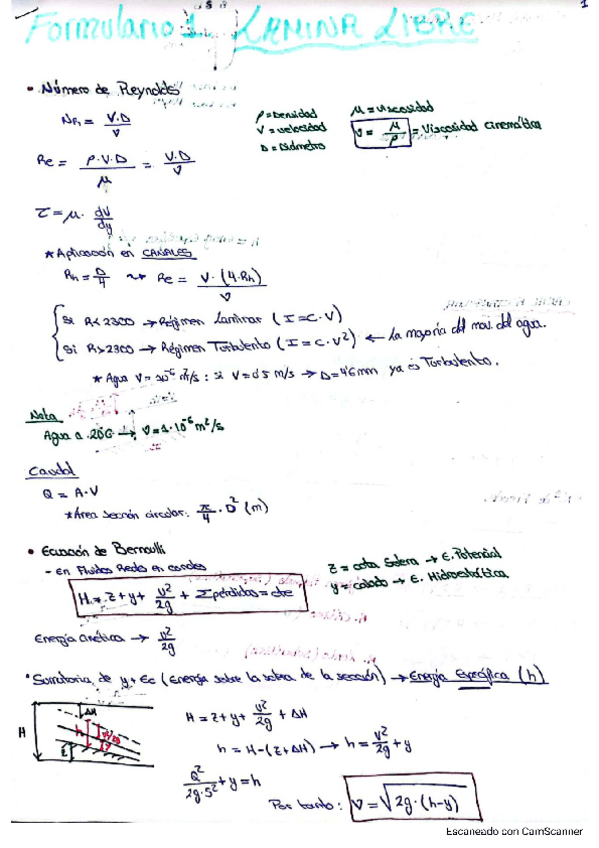 1
Formulario 1 LAMINA LIBRE
• Número de Reynolds
N_R = V·D / ν
ρ = Densidad
V = velocidad
D = Diámetro
μ = Viscosidad
ν = μ / ρ = Viscosidad Cinemática
Re = ρ·V·D / μ = V·D / ν
τ = μ · dV / dy
* Aplicación en CANALES
Rh = D / 4 ⇝ Re = V·(4·Rh) / ν
Si R<2300 → Régimen Laminar (I = C·V)
Si R>2300 → Régimen Turbulento (I = C·V²) ← La mayoría del mov. del agua.
* Agua ν = 10⁻⁶ m²/s : si V = 0'5 m/s → D = 4'6mm ya es Turbulento.
Nota
Agua a 20ºC → ν = 1·10⁻⁶ m²/s
Caudal
Q = A·V
* Área sección circular: π/4 · D² (m)
• Ecuación de Bernoulli
- En Fluidos Reales en canales
z = cota Solera → E. Potencial
y = calado → E. Hidrostática
H = z + y + v²/2g + Σ pérdidas = cte
Energía cinética → v²/2g
• Sumatoria de y + Ec (Energía sobre la solera de la sección) → Energía Específica (h)
H
ΔH
h
v²/2g
y
z
H = z + y + v²/2g + ΔH
h = H - (z + ΔH) → h = v²/2g + y
Q² / 2g·S² + y = h
Por tanto: V = √2g·(h-y)
Escaneado con CamScanner